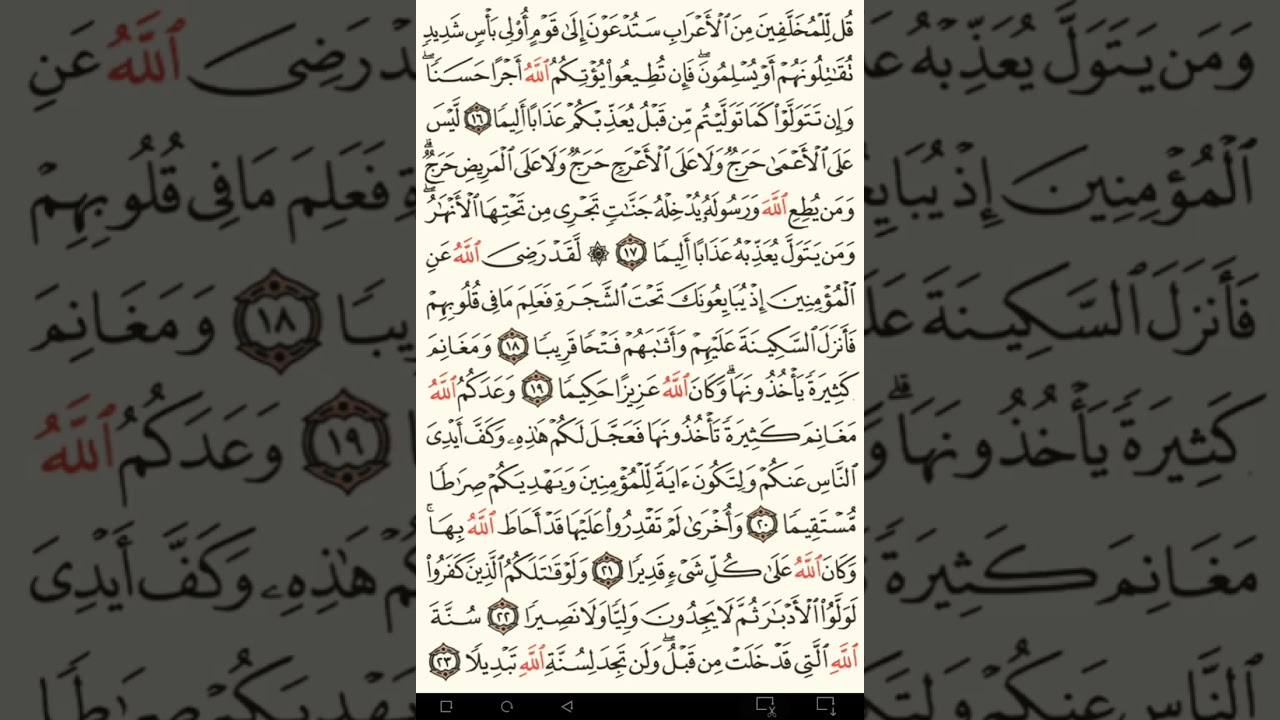 قُل لِّلْمُخَلَّفِينَ مِنَ ٱلْأَعْرَابِ سَتُدْعَوْنَ إِلَىٰ قَوْمٍ أُو۟لِى بَأْسٍ شَدِيدٍ
تُقَـٰتِلُونَهُمْ أَوْ يُسْلِمُونَ ۖ فَإِن تُطِيعُوا۟ يُؤْتِكُمُ ٱللَّهُ أَجْرًا حَسَنًا ۖ
وَإِن تَتَوَلَّوْا۟ كَمَا تَوَلَّيْتُم مِّن قَبْلُ يُعَذِّبْكُمْ عَذَابًا أَلِيمًا ١٦ لَّيْسَ
عَلَى ٱلْأَعْمَىٰ حَرَجٌ وَلَا عَلَى ٱلْأَعْرَجِ حَرَجٌ وَلَا عَلَى ٱلْمَرِيضِ حَرَجٌ ۗ
وَمَن يُطِعِ ٱللَّهَ وَرَسُولَهُۥ يُدْخِلْهُ جَنَّـٰتٍ تَجْرِى مِن تَحْتِهَا ٱلْأَنْهَـٰرُ ۖ
وَمَن يَتَوَلَّ يُعَذِّبْهُ عَذَابًا أَلِيمًا ١٧ ۞ لَّقَدْ رَضِىَ ٱللَّهُ عَنِ
ٱلْمُؤْمِنِينَ إِذْ يُبَايِعُونَكَ تَحْتَ ٱلشَّجَرَةِ فَعَلِمَ مَا فِى قُلُوبِهِمْ
فَأَنزَلَ ٱلسَّكِينَةَ عَلَيْهِمْ وَأَثَـٰبَهُمْ فَتْحًا قَرِيبًا ١٨ وَمَغَانِمَ
كَثِيرَةً يَأْخُذُونَهَا ۗ وَكَانَ ٱللَّهُ عَزِيزًا حَكِيمًا ١٩ وَعَدَكُمُ ٱللَّهُ
مَغَانِمَ كَثِيرَةً تَأْخُذُونَهَا فَعَجَّلَ لَكُمْ هَـٰذِهِۦ وَكَفَّ أَيْدِىَ
ٱلنَّاسِ عَنكُمْ وَلِتَكُونَ ءَايَةً لِّلْمُؤْمِنِينَ وَيَهْدِيَكُمْ صِرَٰطًا
مُّسْتَقِيمًا ٢٠ وَأُخْرَىٰ لَمْ تَقْدِرُوا۟ عَلَيْهَا قَدْ أَحَاطَ ٱللَّهُ بِهَا ۚ
وَكَانَ ٱللَّهُ عَلَىٰ كُلِّ شَىْءٍ قَدِيرًا ٢١ وَلَوْ قَـٰتَلَكُمُ ٱلَّذِينَ كَفَرُوا۟
لَوَلَّوُا۟ ٱلْأَدْبَـٰرَ ثُمَّ لَا يَجِدُونَ وَلِيًّا وَلَا نَصِيرًا ٢٢ سُنَّةَ
ٱللَّهِ ٱلَّتِى قَدْ خَلَتْ مِن قَبْلُ ۖ وَلَن تَجِدَ لِسُنَّةِ ٱللَّهِ تَبْدِيلًا ٢٣